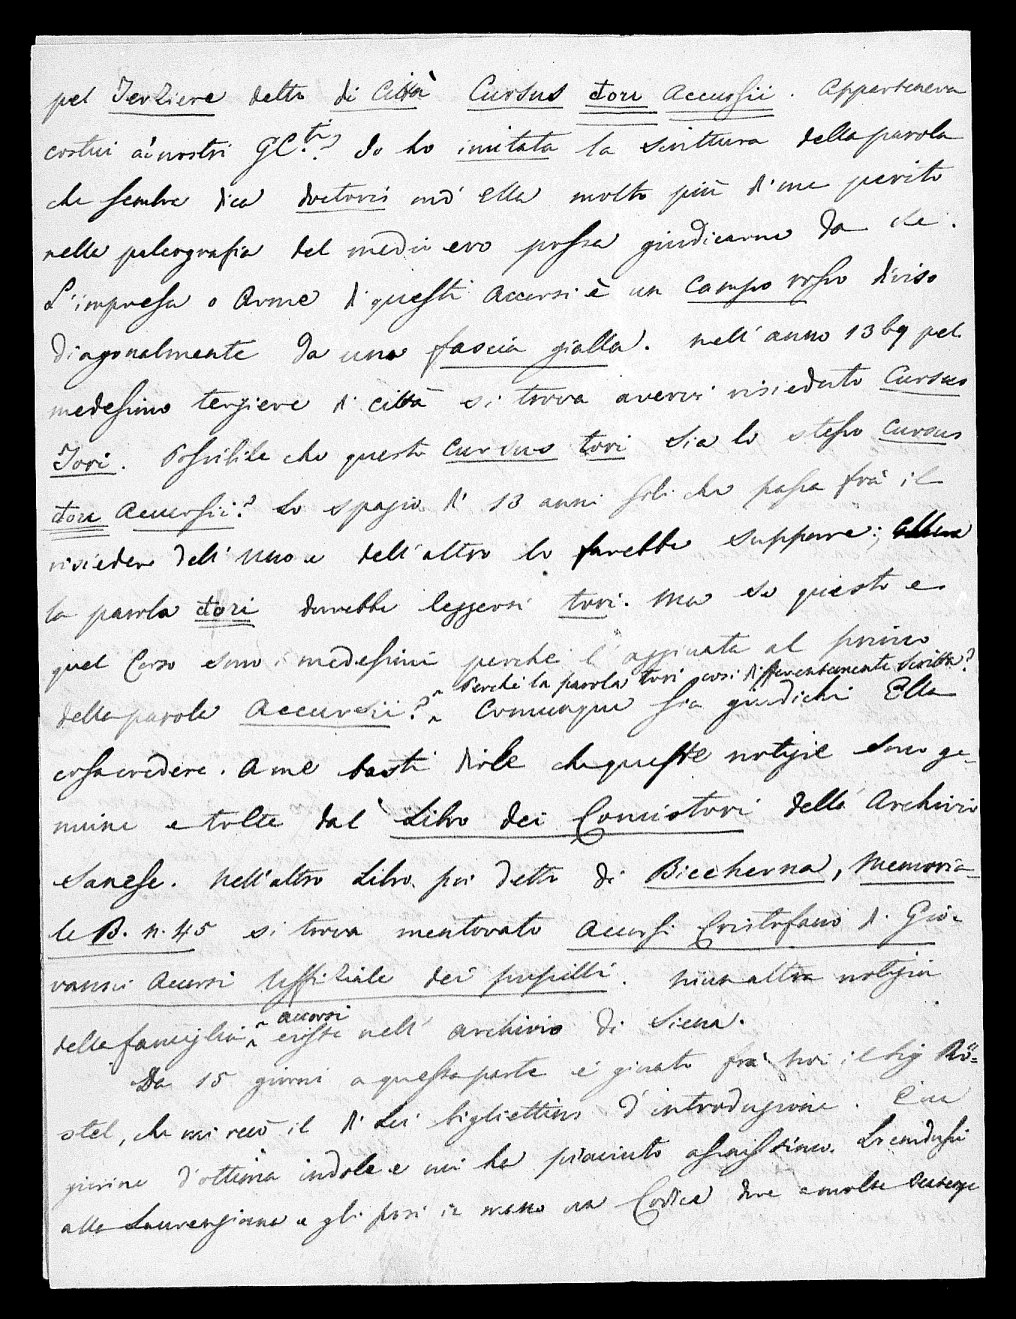 pel Terziere detto di Città Cursus dori Accursii. Apparteneva
costui ai nostri GC.ti? Io ho imitata la scrittura della parola
che sembra dica doctoris ond' Ella molto più di me perito
nella paleografia del medio evo possa giudicarne da se.
L'impresa o Arme di questi Accorsi è un campo rosso diviso
diagonalmente da una fascia gialla. Nell'anno 1369 pel
medesimo terziere di città si trova avervi risieduto Cursus
Tori. Possibile che questo Cursus tori sia lo stesso Cursus
dori Accursii? Lo spazio di 13 anni soli che passa frà il
risieder dell'uno e dell'altro lo farebbe supporre; allora
la parola dori dovrebbe leggersi tori. Ma se questo e
quel Corso sono i medesimi perchè l'aggiunta al primo
perchè la parola tori così differentemente scritta?
della parola Accursii? Comunque sia giudichi Ella
cosa credere. A me basti dirle che queste notizie sono ge-
nuine e tolte dal Libro dei Concistori dell' Archivio
Sanese. Nell'altro Libro poi detto di Biccherna, Memoria-
le B. n. 45 si trova mentovato Accorsi Cristofano di Gio-
vanni Accorsi Uffiziale dei pupilli. Niun altra notizia
accorsi
della famiglia esiste nell' archivio di Siena.
Da 15 giorni a questa parte è giunto frà noi il Sig Rö-
stel, che mi recò il di Lei bigliettino d'introduzione. È un
giovine d'ottima indole e mi ha piaciuto assaissimo. Lo condussi
alla Laurenziana e gli posi in mano un Codice dove a molte